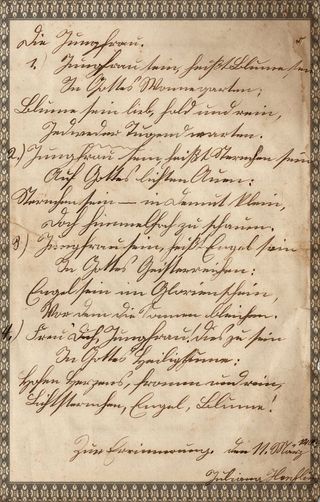 Die Jungfrau.
1.) Jungfrau sein, heißt Blume sein
In Gottes Wonnegarten,
Blume sein lieb, hold und rein,
Jedweder Tugend warten.
2.) Jungfrau sein, heißt Sternchen sein
Auf Gottes lichten Auen:
Sternchen sein — in Demut klein,
Doch himmelhoch zu schauen.
3.) Jungfrau sein, heißt Engel sein
In Gottes Geisterreichen:
Engel sein im Glorienschein,
Vor dem die Sonnen bleichen.
4.) Freu Dich, Jungfrau, dies zu sein
In Gottes Heiligtume:
Hohen Herzens, fromm und rein,
Lichtsternchen, Engel, Blume!
Zur Erinnerung. den 11. März
Juliana